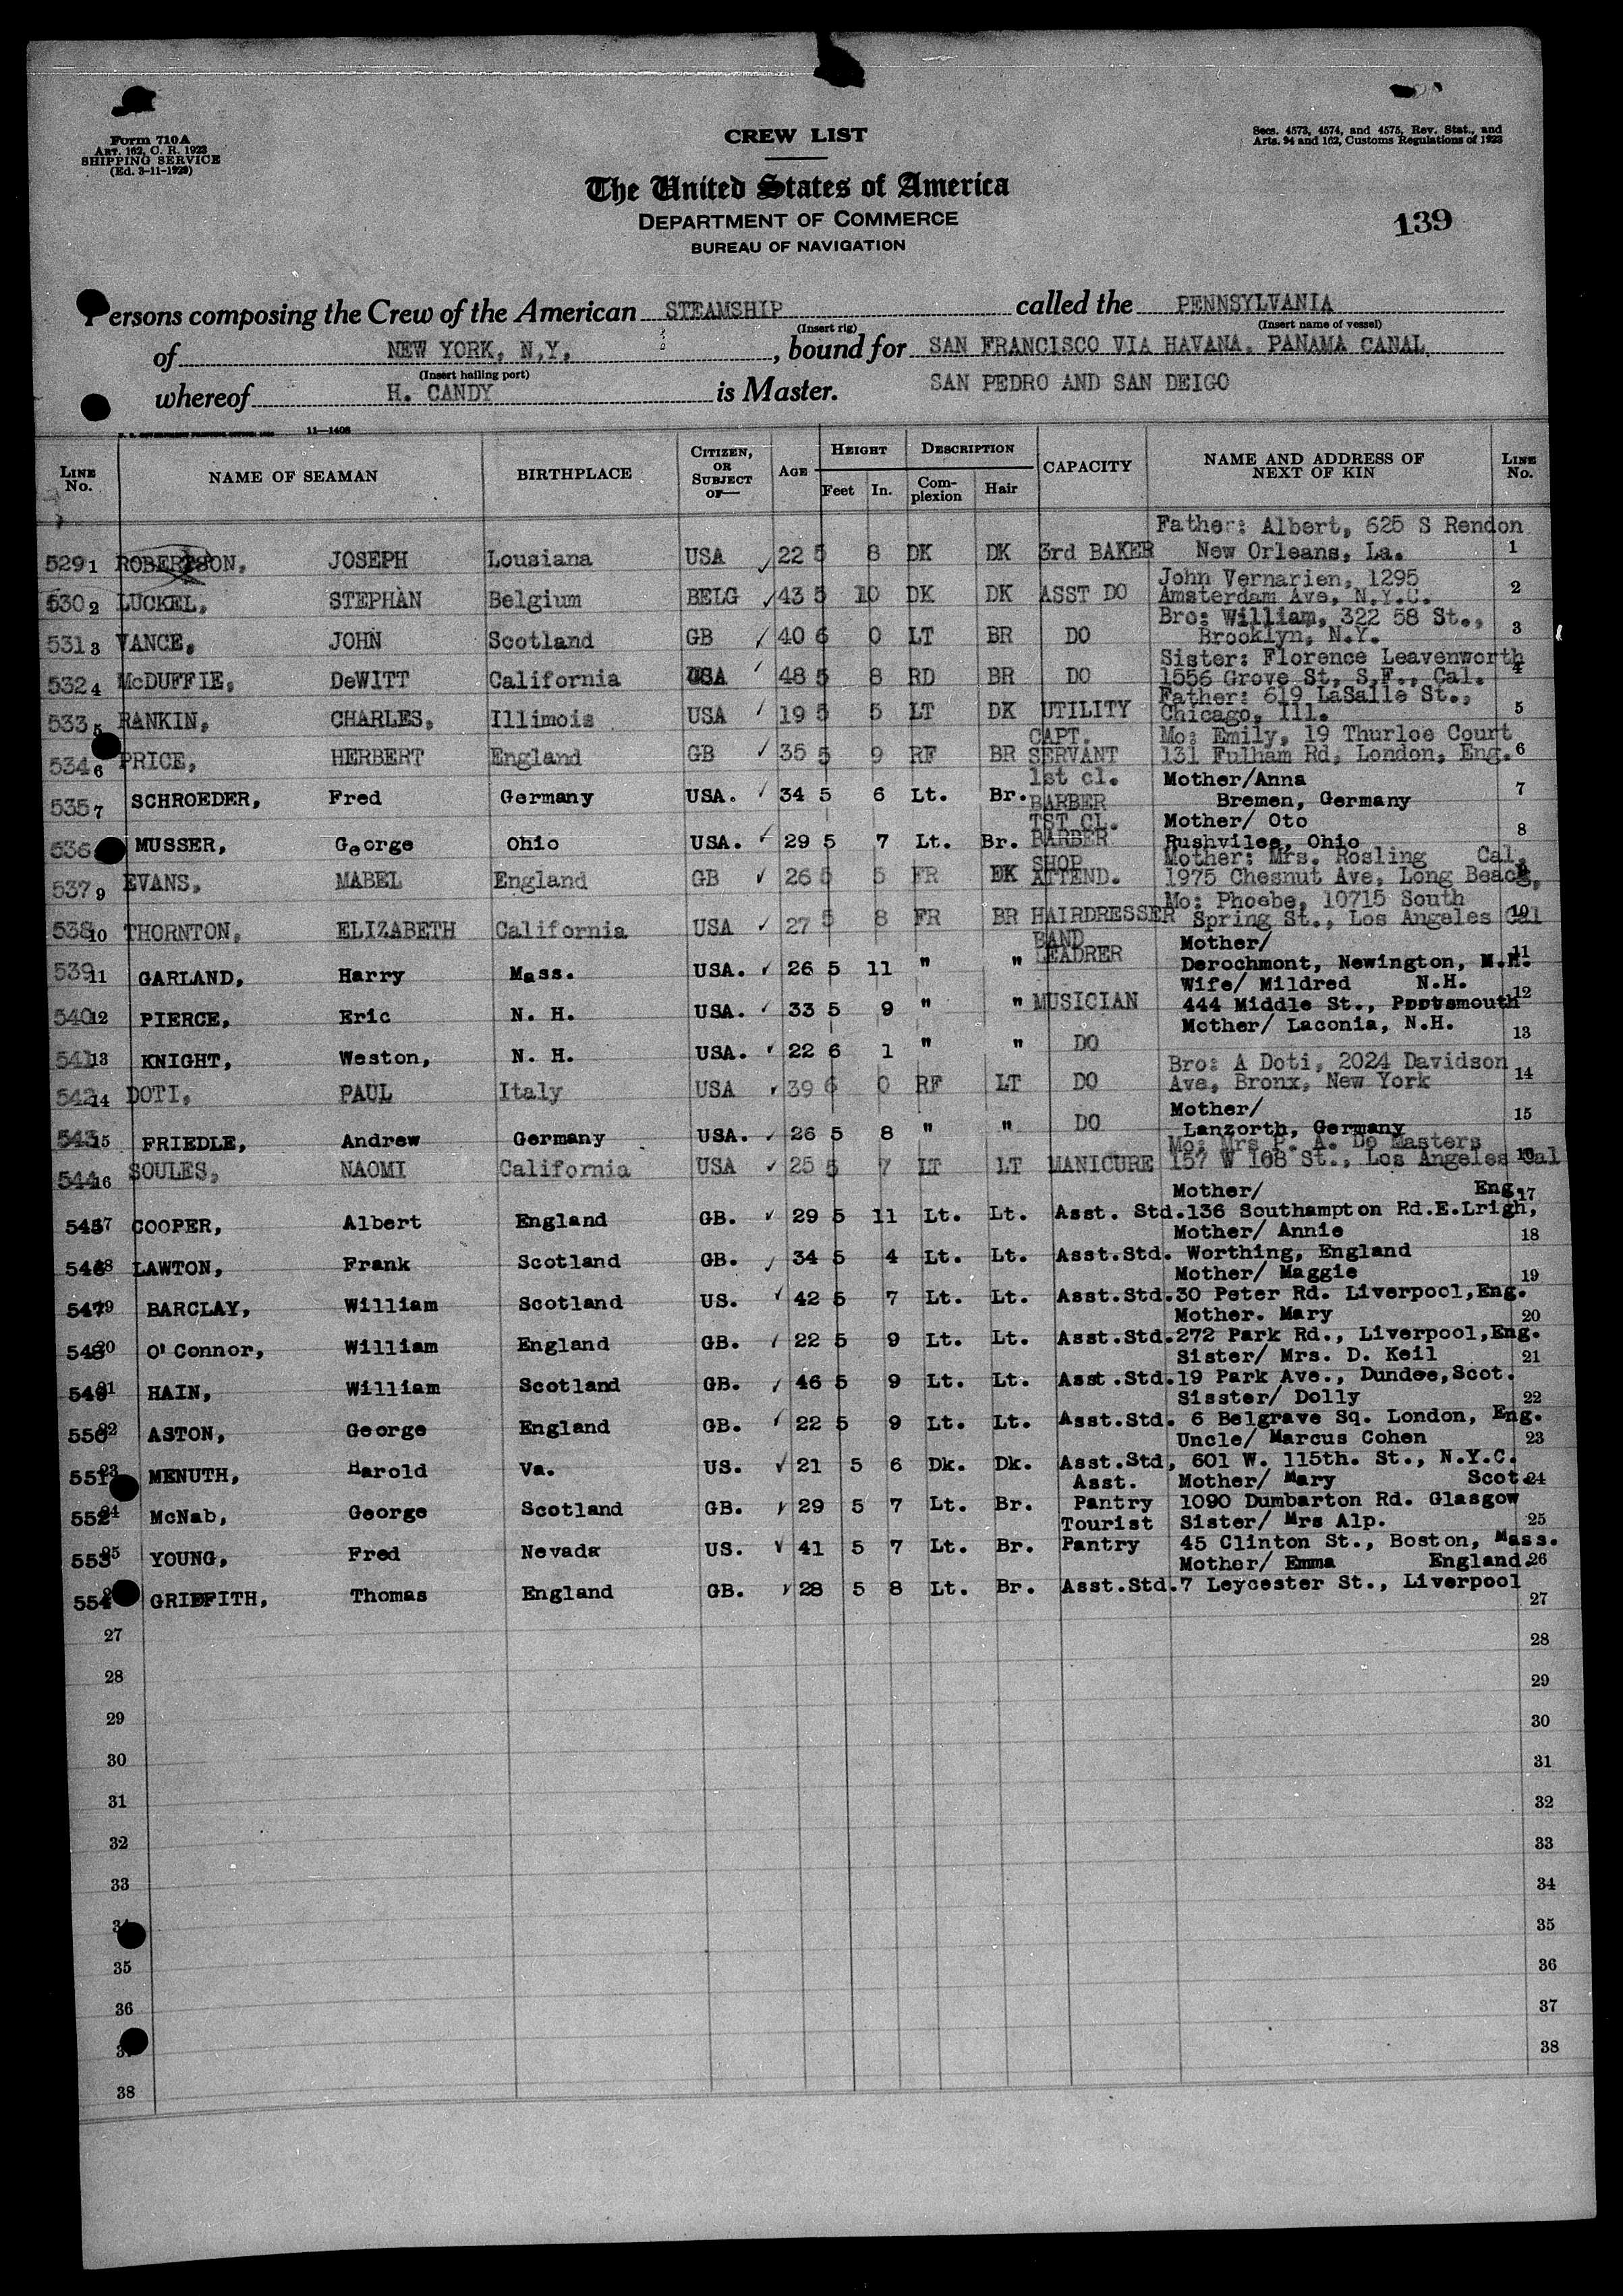 Form 710A
ART. 162, C. R. 1923
SHIPPING SERVICE
(Ed. 3-11-1929)
CREW LIST
Secs. 4573, 4574, and 4575, Rev. Stat., and
Arts. 94 and 162, Customs Regulations of 1923
The United States of America
DEPARTMENT OF COMMERCE
BUREAU OF NAVIGATION
139
Persons composing the Crew of the American STEAMSHIP called the PENNSYLVANIA
(Insert rig) (Insert name of vessel)
of NEW YORK, N.Y. , bound for SAN FRANCISCO VIA HAVANA. PANAMA CANAL
(Insert hailing port)
whereof H. CANDY is Master. SAN PEDRO AND SAN DEIGO
11—1408
LINE No. NAME OF SEAMAN BIRTHPLACE CITIZEN, OR SUBJECT OF— AGE HEIGHT Feet In. DESCRIPTION Complexion Hair CAPACITY NAME AND ADDRESS OF NEXT OF KIN LINE No.
Father: Albert, 625 S Rendon
529 1 ROBERTSON, JOSEPH Lousiana USA 22 5 8 DK DK 3rd BAKER New Orleans, La. 1
John Vernarien, 1295
530 2 LUCKEL, STEPHAN Belgium BELG 43 5 10 DK DK ASST DO Amsterdam Ave, N.Y.C. 2
Bro: William, 322 58 St.,
531 3 VANCE, JOHN Scotland GB 40 6 0 LT BR DO Brooklyn, N.Y. 3
Sister: Florence Leavenworth
532 4 McDUFFIE, DeWITT California USA 48 5 8 RD BR DO 1556 Grove St, S.F., Cal. 4
Father: 619 LaSalle St.,
533 5 RANKIN, CHARLES, Illimois USA 19 5 5 LT DK UTILITY Chicago, Ill. 5
CAPT. Mo: Emily, 19 Thurloe Court
534 6 PRICE, HERBERT England GB 35 5 9 RF BR SERVANT 131 Fulham Rd, London, Eng. 6
1st cl. Mother/Anna
535 7 SCHROEDER, Fred Germany USA. 34 5 6 Lt. Br. BARBER Bremen, Germany 7
TST CL. Mother/ Oto
536 MUSSER, George Ohio USA. 29 5 7 Lt. Br. BARBER Rushvilee, Ohio 8
SHOP Mother: Mrs. Rosling Cal.
537 9 EVANS, MABEL England GB 26 5 5 FR DK ATTEND. 1975 Chesnut Ave, Long Beach,
Mo: Phoebe, 10715 South
538 10 THORNTON, ELIZABETH California USA 27 5 8 FR BR HAIRDRESSER Spring St., Los Angeles Cal 10
BAND Mother/
539 11 GARLAND, Harry Mass. USA. 26 5 11 " " LEADRER Derochmont, Newington, N.H. 11
Wife/ Mildred N.H.
540 12 PIERCE, Eric N. H. USA. 33 5 9 " " MUSICIAN 444 Middle St., Portsmouth 12
Mother/ Laconia, N.H.
541 13 KNIGHT, Weston, N. H. USA. 22 6 1 " " DO 13
Bro: A Doti, 2024 Davidson
542 14 DOTI, PAUL Italy USA 39 6 0 RF LT DO Ave, Bronx, New York 14
Mother/
543 15 FRIEDLE, Andrew Germany USA. 26 5 8 " " DO Lanzorth, Germany 15
Mo: Mrs P. A. De Masters
544 16 SOULES, NAOMI California USA 25 5 7 LT LT MANICURE 157 W 108 St., Los Angeles Cal 16
Mother/ Eng. 17
545 17 COOPER, Albert England GB. 29 5 11 Lt. Lt. Asst. Std. 136 Southampton Rd.E.Lrigh,
Mother/ Annie 18
546 18 LAWTON, Frank Scotland GB. 34 5 4 Lt. Lt. Asst.Std. Worthing, England
Mother/ Maggie 19
547 19 BARCLAY, William Scotland US. 42 5 7 Lt. Lt. Asst.Std. 30 Peter Rd. Liverpool,Eng.
Mother. Mary 20
548 20 O'Connor, William England GB. 22 5 9 Lt. Lt. Asst.Std. 272 Park Rd., Liverpool,Eng.
Sister/ Mrs. D. Keil 21
549 21 HAIN, William Scotland GB. 46 5 9 Lt. Lt. Asst.Std. 19 Park Ave., Dundee,Scot.
Sisster/ Dolly 22
550 22 ASTON, George England GB. 22 5 9 Lt. Lt. Asst.Std. 6 Belgrave Sq. London, Eng.
Uncle/ Marcus Cohen 23
551 23 MENUTH, Harold Va. US. 21 5 6 Dk. Dk. Asst.Std, 601 W. 115th. St., N.Y.C.
Asst. Mother/ Mary Scot. 24
552 24 McNab, George Scotland GB. 29 5 7 Lt. Br. Pantry 1090 Dumbarton Rd. Glasgow
Tourist Sister/ Mrs Alp. 25
553 25 YOUNG, Fred Nevada US. 41 5 7 Lt. Br. Pantry 45 Clinton St., Boston, Mass.
Mother/ Emma England. 26
554 GRIFFITH, Thomas England GB. 28 5 8 Lt. Br. Asst.Std. 7 Leycester St., Liverpool
27
27
28
28
29
29
30
30
31
31
32
32
33
33
34
34
35
35
36
36
37
37
38
38